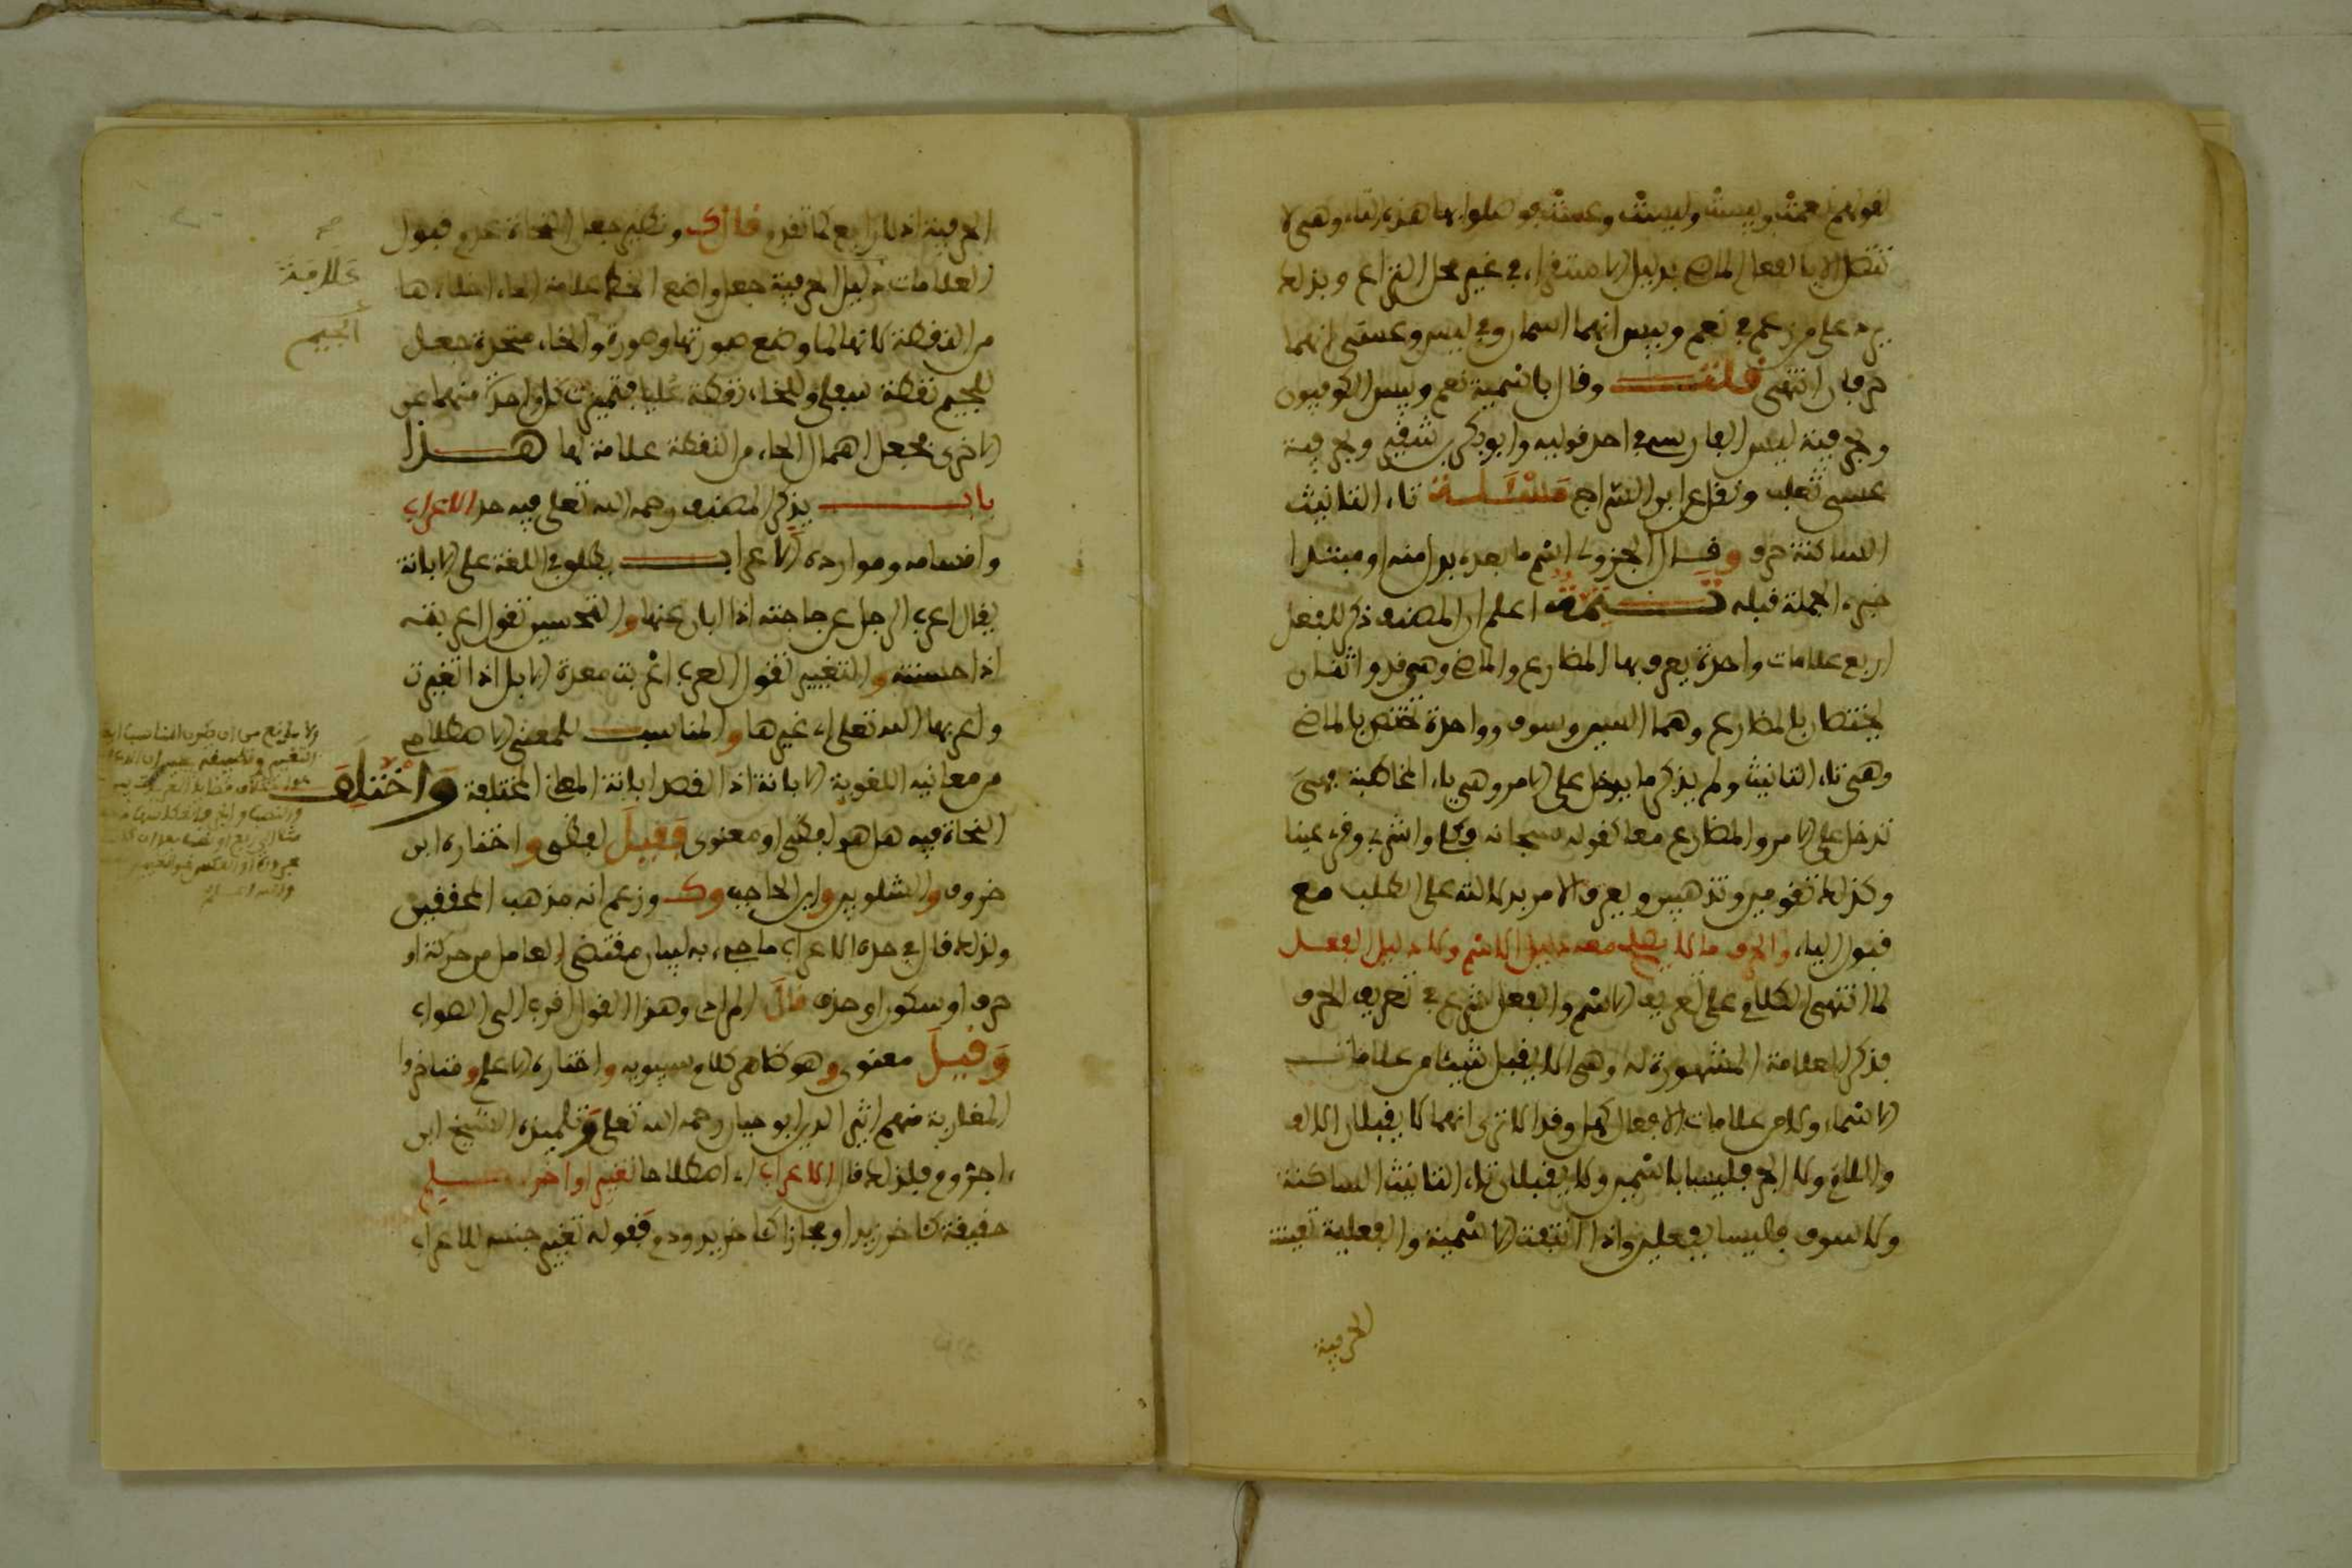 لقولهم نعمت وبيست وليست وعست فوصلوا بها هذه التاء وهي لا
تتصل الا بالفعل الماضي بدليل الاستقراء في غير محل النزاع وبذلك
يرد على من زعم في نعم وبيس انهما اسمان وفي ليس وعسى انهما
حرفان انتهى قلت وقال باسمية نعم وبيس الكوفيون
وبحرفية ليس الفارسي في احد قوليه وابو بكر بن شقير وبحرفية
عسى ثعلب ونقل عن ابن السراج مسألة تاء التانيث
الساكنة حرف وقال الجزولي اسم ما بعده بدل منه او مبتدا
خبره الجملة قبله تتمة اعلم ان المصنف ذكر للفعل
اربع علامات واحدة يعرف بها المضارع والماضي وهي قد واثنتان
يختصان بالمضارع وهما السين وسوف وواحدة تختص بالماضي
وهي تاء التانيث ولم يذكر ما يدخل على الامر وهي ياء المخاطبة فهي
تدخل على الامر والمضارع معا كقوله سبحانه فكلي واشربي وقري عينا
وكذلك تقومين وتذهبين ويعرف الامر بدلالته على الطلب مع
قبول الياء والحرف ما لا يصلح معه دليل الاسم ولا دليل الفعل
لما انتهى الكلام على تعريف الاسم والفعل شرع في تعريف الحرف
فذكر العلامة المشهورة له وهي الا يقبل شيئا من علامات
الاسماء ولا من علامات الافعال كهل وقد الا ترى انهما لا يقبلان الالف
واللام ولا الجر فليسا باسمين ولا يقبلان تاء التانيث الساكنة
ولا سوف فليسا بفعلين واذا انتفت الاسمية والفعلية تعينت
الحرفية
الحرفية اذ لا رابع كما تقدم قال ك ونظير جعل النحاة عدم قبول
العلامات دليل الحرفية جعل واضع الخط علامة الحاء اخلاءها
من النقطة لانه لما وضع صورتها وصورة والخاء متحدة جعل
للجيم نقطة سفلى وللخاء نقطة عليا فتميزت كل واحدة منهما عن
الاخرى فجعل اهمال الحاء من النقطة علامة لها هذا
باب يذكر المصنف رحمه الله تعلى فيه حد الاعراب
واقسامه وموارده الاعراب يطلق في اللغة على الابانة
يقال اعرب الرجل عن حاجته اذا ابان عنها والتحسين تقول اعربته
اذا حسنته والتغيير تقول العرب اعربت معدة الابل اذا تغيرت
واعربها الله تعلى اي غيرها والمناسب للمعنى الاصطلاحي
من معانيه اللغوية الابانة اذ القصد ابانة المعاني المختلفة واختلف
النحاة فيه هل هو لفظي او معنوي فقيل لفظي واختاره ابن
خروف والشلوبين وابن الحاجب وك وزعم انه مذهب المحققين
ولذلك قال في حده الاعراب ما جيء به لبيان مقتضى العامل من حركة او
حرف او سكون او حذف قال المرادي وهذا القول اقرب الى الصواب
وقيل معنوي وهو ظاهر كلام سيبويه واختاره الاعلم ومتاخروا
المغاربة منهم اثير الدين ابو حيان رحمه الله تعلى وتلميذه الشيخ ابن
اجروم فلذلك قال الاعراب اي اصطلاحا تغيير اواخر الكلم
حقيقة كاخر زيد او مجازا كاخر يد ودم فقوله تغيير جنس للاعراب
علامة
الجيم